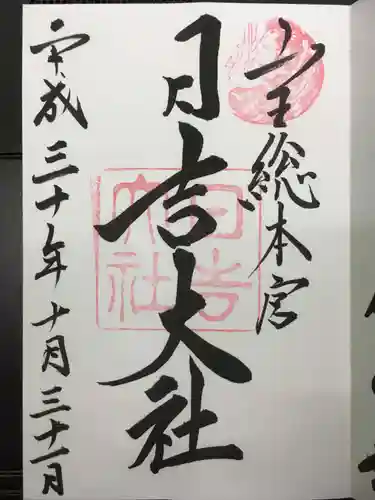 山王総本宮
日吉大社
日吉大社
平成三十年十月三十一日